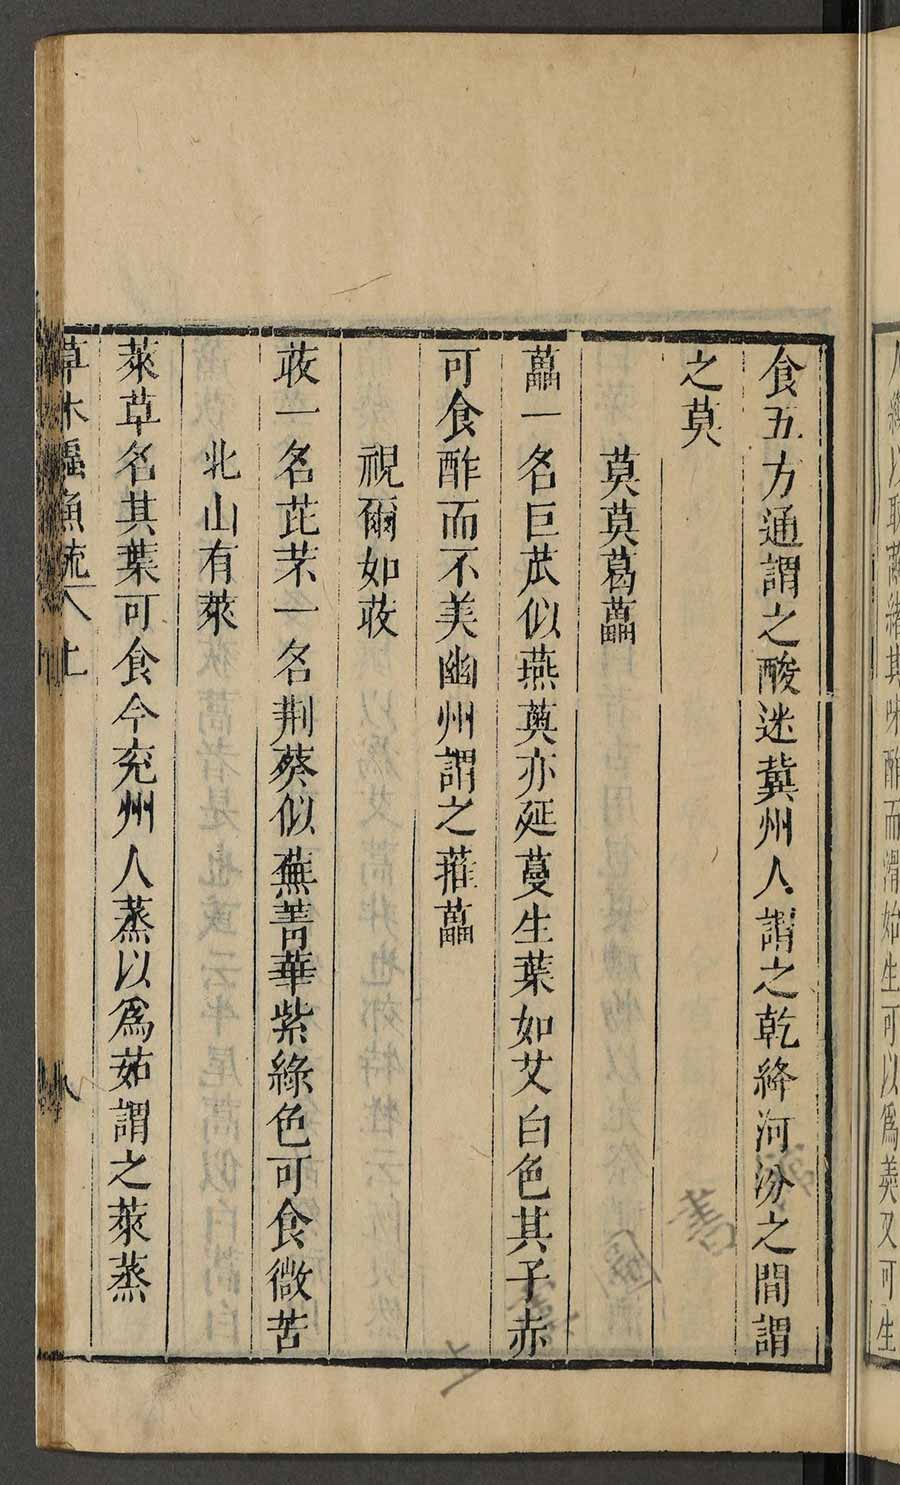 人繅以取繭緒其味酢而滑始生可以爲羮又可生
食五方通謂之酸迷冀州人謂之乾絳河汾之間謂
之莫
莫莫葛藟
藟一名巨苽似燕薁亦延蔓生葉如艾白色其子赤
可食酢而不美幽州謂之蓷藟
視爾如荍
荍一名芘芣一名荆葵似蕪菁華紫綠色可食微苦
北山有萊
萊草名其葉可食今兖州人蒸以爲茹謂之萊蒸
草木蟲魚疏 上 八